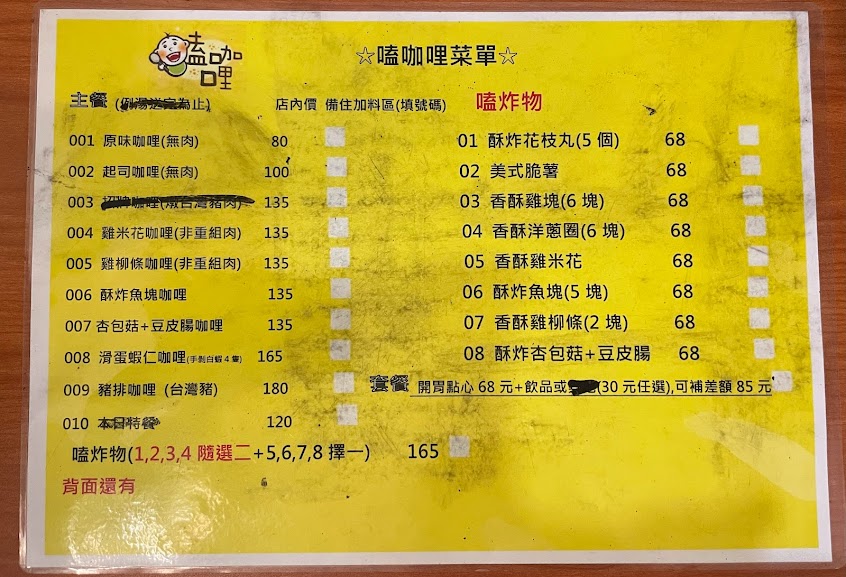 嗑咖哩
☆嗑咖哩菜單☆
主餐 (附湯送完為止) 店內價 備住加料區(填號碼)
001 原味咖哩(無肉) 80
002 起司咖哩(無肉) 100
003 招牌咖哩(燉台灣豬肉) 135
004 雞米花咖哩(非重組肉) 135
005 雞柳條咖哩(非重組肉) 135
006 酥炸魚塊咖哩 135
007 杏包菇+豆皮腸咖哩 135
008 滑蛋蝦仁咖哩(手剝白蝦4隻) 165
009 豬排咖哩 (台灣豬) 180
010 本日特餐 120
嗑炸物(1,2,3,4 隨選二+5,6,7,8 擇一) 165
背面還有
嗑炸物
01 酥炸花枝丸(5 個) 68
02 美式脆薯 68
03 香酥雞塊(6 塊) 68
04 香酥洋蔥圈(6 塊) 68
05 香酥雞米花 68
06 酥炸魚塊(5 塊) 68
07 香酥雞柳條(2 塊) 68
08 酥炸杏包菇+豆皮腸 68
套餐 開胃點心 68 元+飲品或(30 元任選),可補差額 85 元